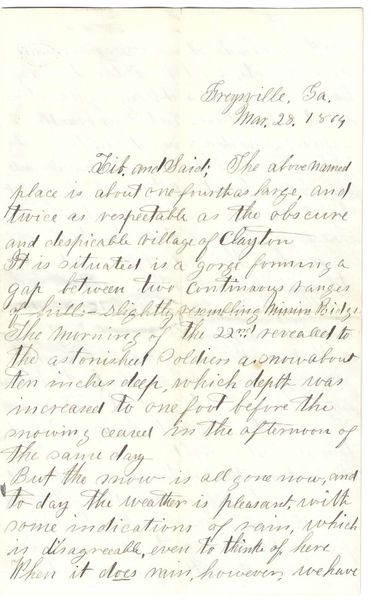 Greysville, Ga.
Mar. 28. 1864
Tib, and Said; The above named
place is about one fourth as large, and
twice as respectable as the obscure
and despicable village of Clayton
It is situated is a gorge forming a
gap between two continuous ranges
of hills – slightly resembling Mission Ridge
The morning of the 22nd revealed to
the astonished soldiers a snow about
ten inches deep, which depth was
increased to one foot before the
snowing ceased in the afternoon of
the same day
But the snow is all gone now, and
to day the weather is pleasant, with
some indications of rain, which
is disagreeable, even to think of, here
When it does rain, however, we have